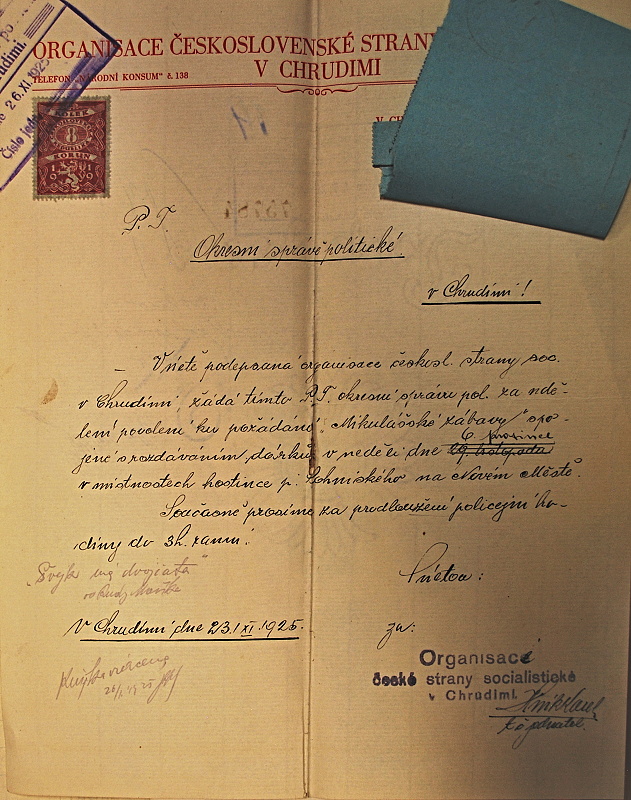 ORGANISACE ČESKOSLOVENSKÉ STRANY
V CHRUDIMI
TELEFON „NÁRODNÍ KONSUM" č. 138
26.XI.1925
Číslo jedn.
KOLEK
8
KORUN
P. T.
Okresní správě politické
v Chrudimi!
Vníže podepsaná organisace českosl. strany soc.
v Chrudimi, žádá tímto P.T. okresní správu pol. za udě-
lení povolení ku pořádání „Mikulášské zábavy" spo-
6. prosince
jené s rozdáváním dárků v neděli dne 29. listopadu
v místnostech hostince p. Lehniského na Novém Městě.
Současně prosíme za prodloužení policejní ho-
diny do 3h. ranní.
„Švejk má dvojčata"
V úctě:
V Chrudimi dne 23./XI. 1925.
za:
Organisace
české strany socialistické
v Chrudimi.